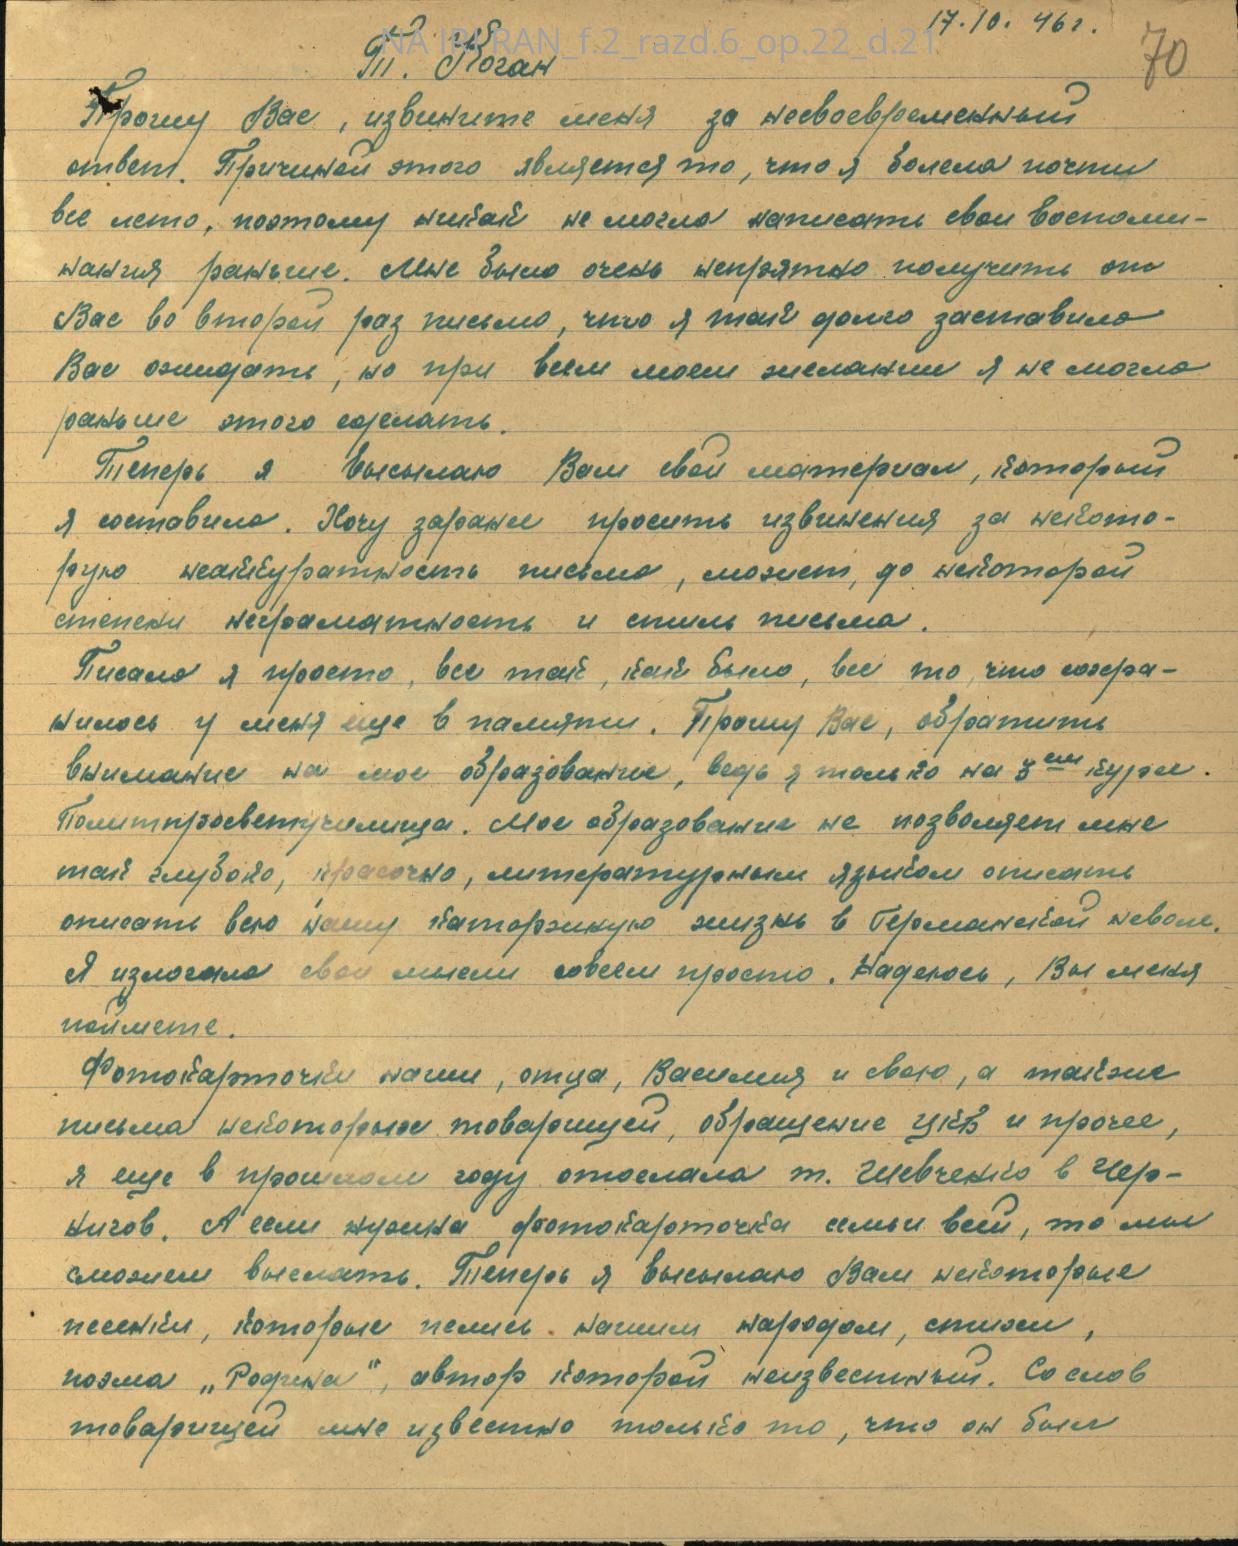 17.10.46г.
70
NA IRI RAN_f.2_razd.6_op.22_d.21
Т. Коган
Прошу Вас, извините меня за несвоевременный
ответ. Причиной этого является то, что я болела почти
все лето, поэтому никак не могла написать свои воспоми-
нания раньше. Мне было очень неприятно получить от
Вас во второй раз письмо, что я так долго заставила
Вас ожидать, но при всем моем желании я не могла
раньше этого сделать.
Теперь я высылаю Вам свой материал, который
я составила. Хочу заранее просить извинения за некото-
рую неаккуратность письма, может, до некоторой
степени неграматность и стиль письма.
Писала я просто, все так, как было, все то, что сохра-
нилось у меня еще в памяти. Прошу Вас, обратить
внимание на мое образование, ведь я только на 3ем курсе.
Политпросветучилища. Мое образование не позволяет мне
так глубоко, красочно, литературным языком описать
описать всю нашу каторжную жизнь в Германской неволе.
Я излогала свои мысли совсем просто. Надеюсь, Вы меня
поймете.
Фотокарточки наши, отца, Василия и свою, а также
письма некоторых товарищей, обращение ЦКВ и прочее,
я еще в прошлом году отослала т. Шевченко в Чер-
нигов. А если нужна фотокарточка семьи всей, то мы
сможем выслать. Теперь я высылаю Вам некоторые
песенки, которые пелись нашим народом, стихи,
поэма „Родина", автор которой неизвестный. Со слов
товарищей мне известно только то, что он был